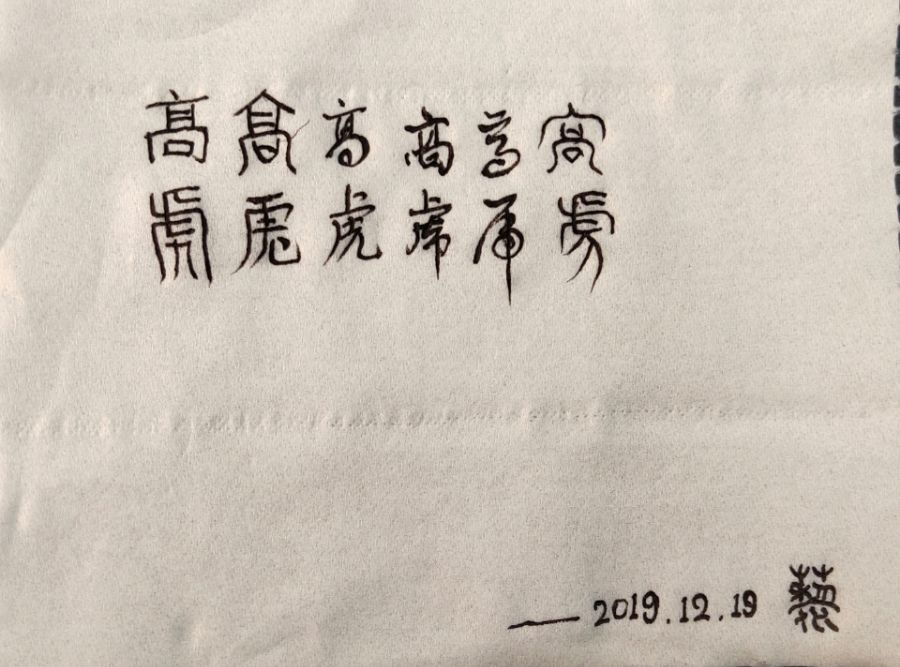 高高高高高高
虎虎虎虎虎虎
—2019.12.19 藝